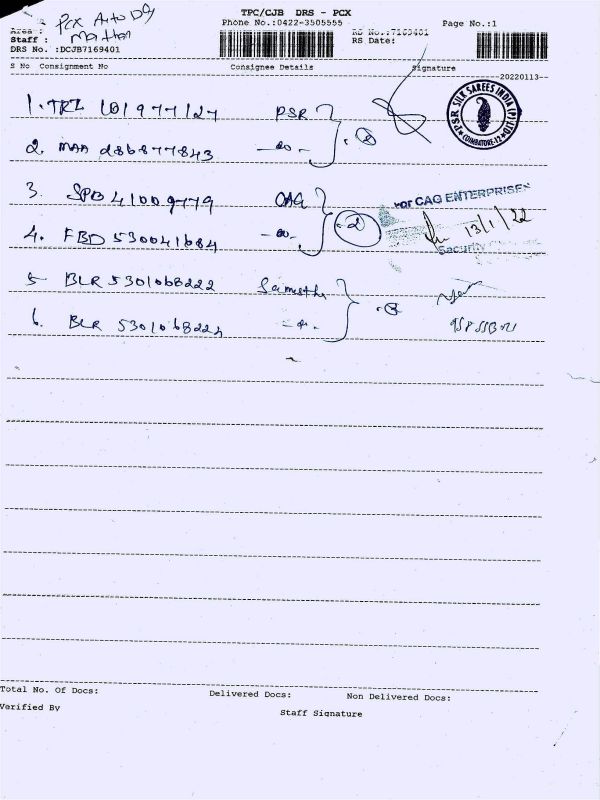 TPC/CJB DRS - PCX
Phone No.:0422-3505555
Page No.:1
PCX Auto
Area :
Staff :
RS No.:7169401
RS Date:
DRS No. :DCJB7169401
S No Consignment No Consignee Details Signature
20220113
1. TRZ 101977127 PSR
2. MAA 286877843 -do-
PSR SILK SAREES INDIA (P) LTD COIMBATORE-12
3. SPB 41009779 CAG
For CAG ENTERPRISES
4. FBD 530041684 -do- 2
13/1/22
Security
5 BLR 5301068222
6. BLR 5301068224 -do-
Total No. Of Docs: Delivered Docs: Non Delivered Docs:
Verified By
Staff Signature